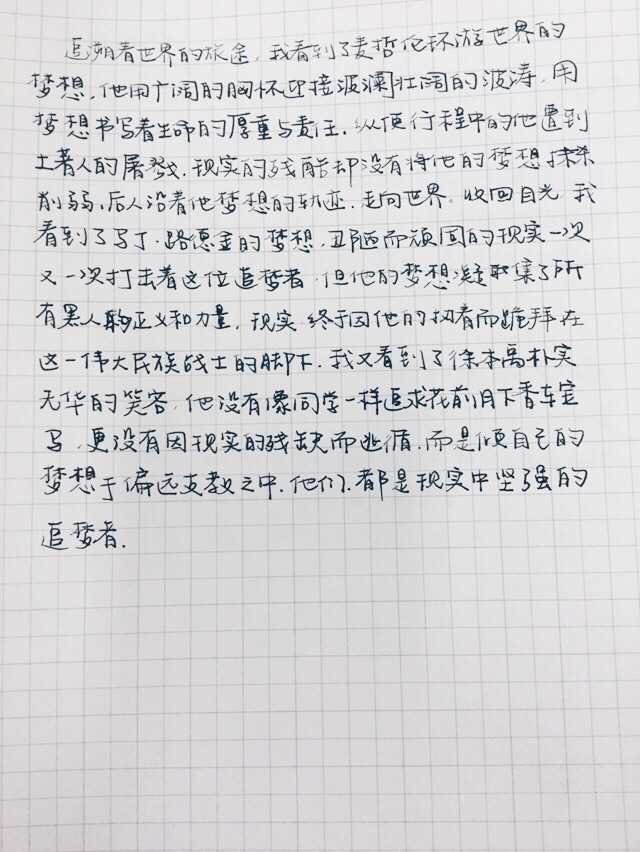 追溯着世界的旅途，我看到了麦哲伦环游世界的
梦想，他用广阔的胸怀迎接波澜壮阔的波涛，用
梦想书写着生命的厚重与责任，纵使行程中的他遭到
土著人的屠戮，现实的残酷却没有将他的梦想抹杀
削弱，后人沿着他梦想的轨迹，走向世界。收回目光，我
看到了马丁·路德金的梦想，丑陋而顽固的现实一次
又一次打击着这位追梦者，但他的梦想凝聚集了所
有黑人的正义和力量，现实终于因他的执着而跪拜在
这一伟大民族战士的脚下，我又看到了徐本禹朴实
无华的笑容，他没有像同学一样追求花前月下香车宝
马，更没有因现实的残缺而逃循，而是倾自己的
梦想于偏远支教之中，他们，都是现实中坚强的
追梦者．